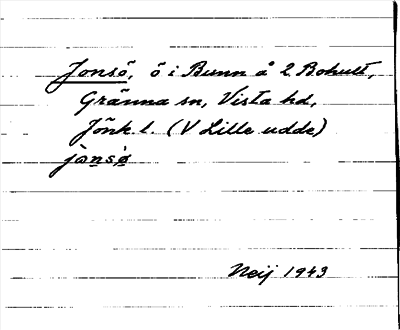 Jonsö, ö i Bunn å 2 Bohult,
Gränna sn, Vista hd,
Jönk l. (V Lille udde)
jònsø̀
Neij 1943